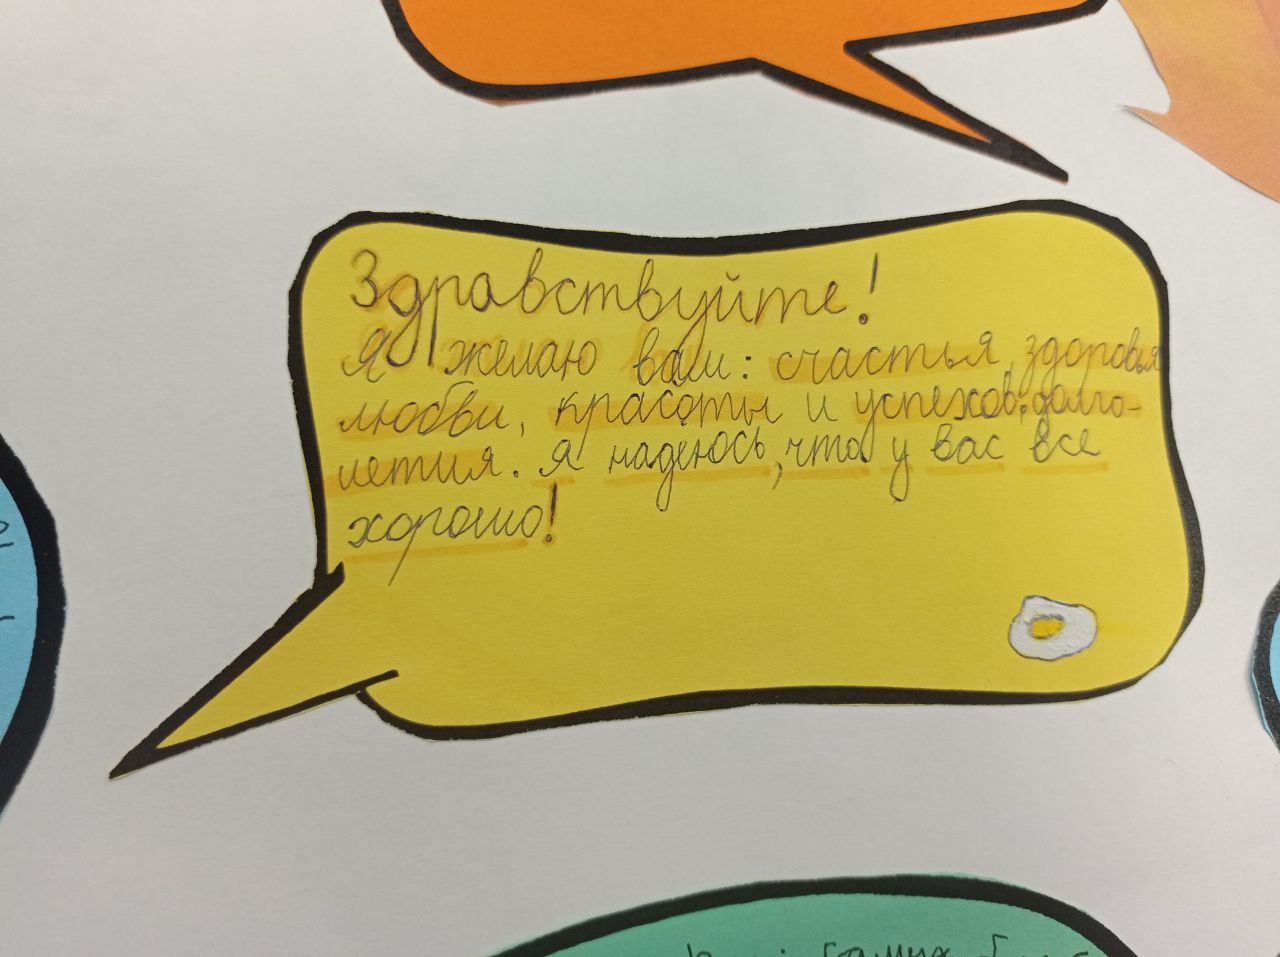 Здравствуйте!
Я желаю вам: счастья, здоровья
любви, красоты и успехов, долго-
летия. Я надеюсь, что у вас все
хорошо!